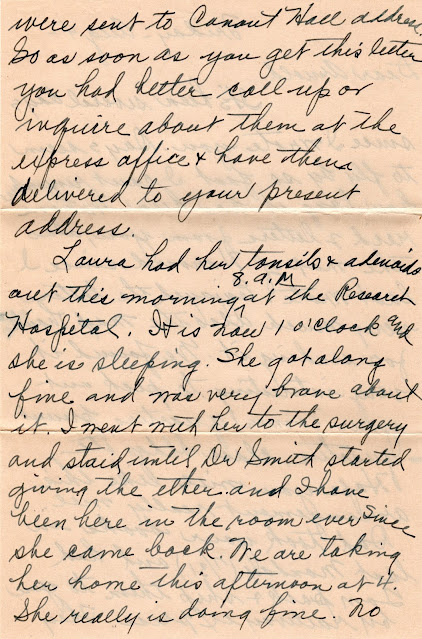 were sent to Conant Hall address.
So as soon as you get this letter
you had better call up or
inquire about them at the
express office & have them
delivered to your present
address.
Laura had her tonsils & adenoids
out this morning 8. A.M at the Research
Hospital. It is now 1 o'clock and
she is sleeping. She got along
fine and was very brave about
it. I went with her to the surgery
and staid until Dr Smith started
giving the ether. and I have
been here in the room ever since
she came back. We are taking
her home this afternoon at 4.
She really is doing fine. No